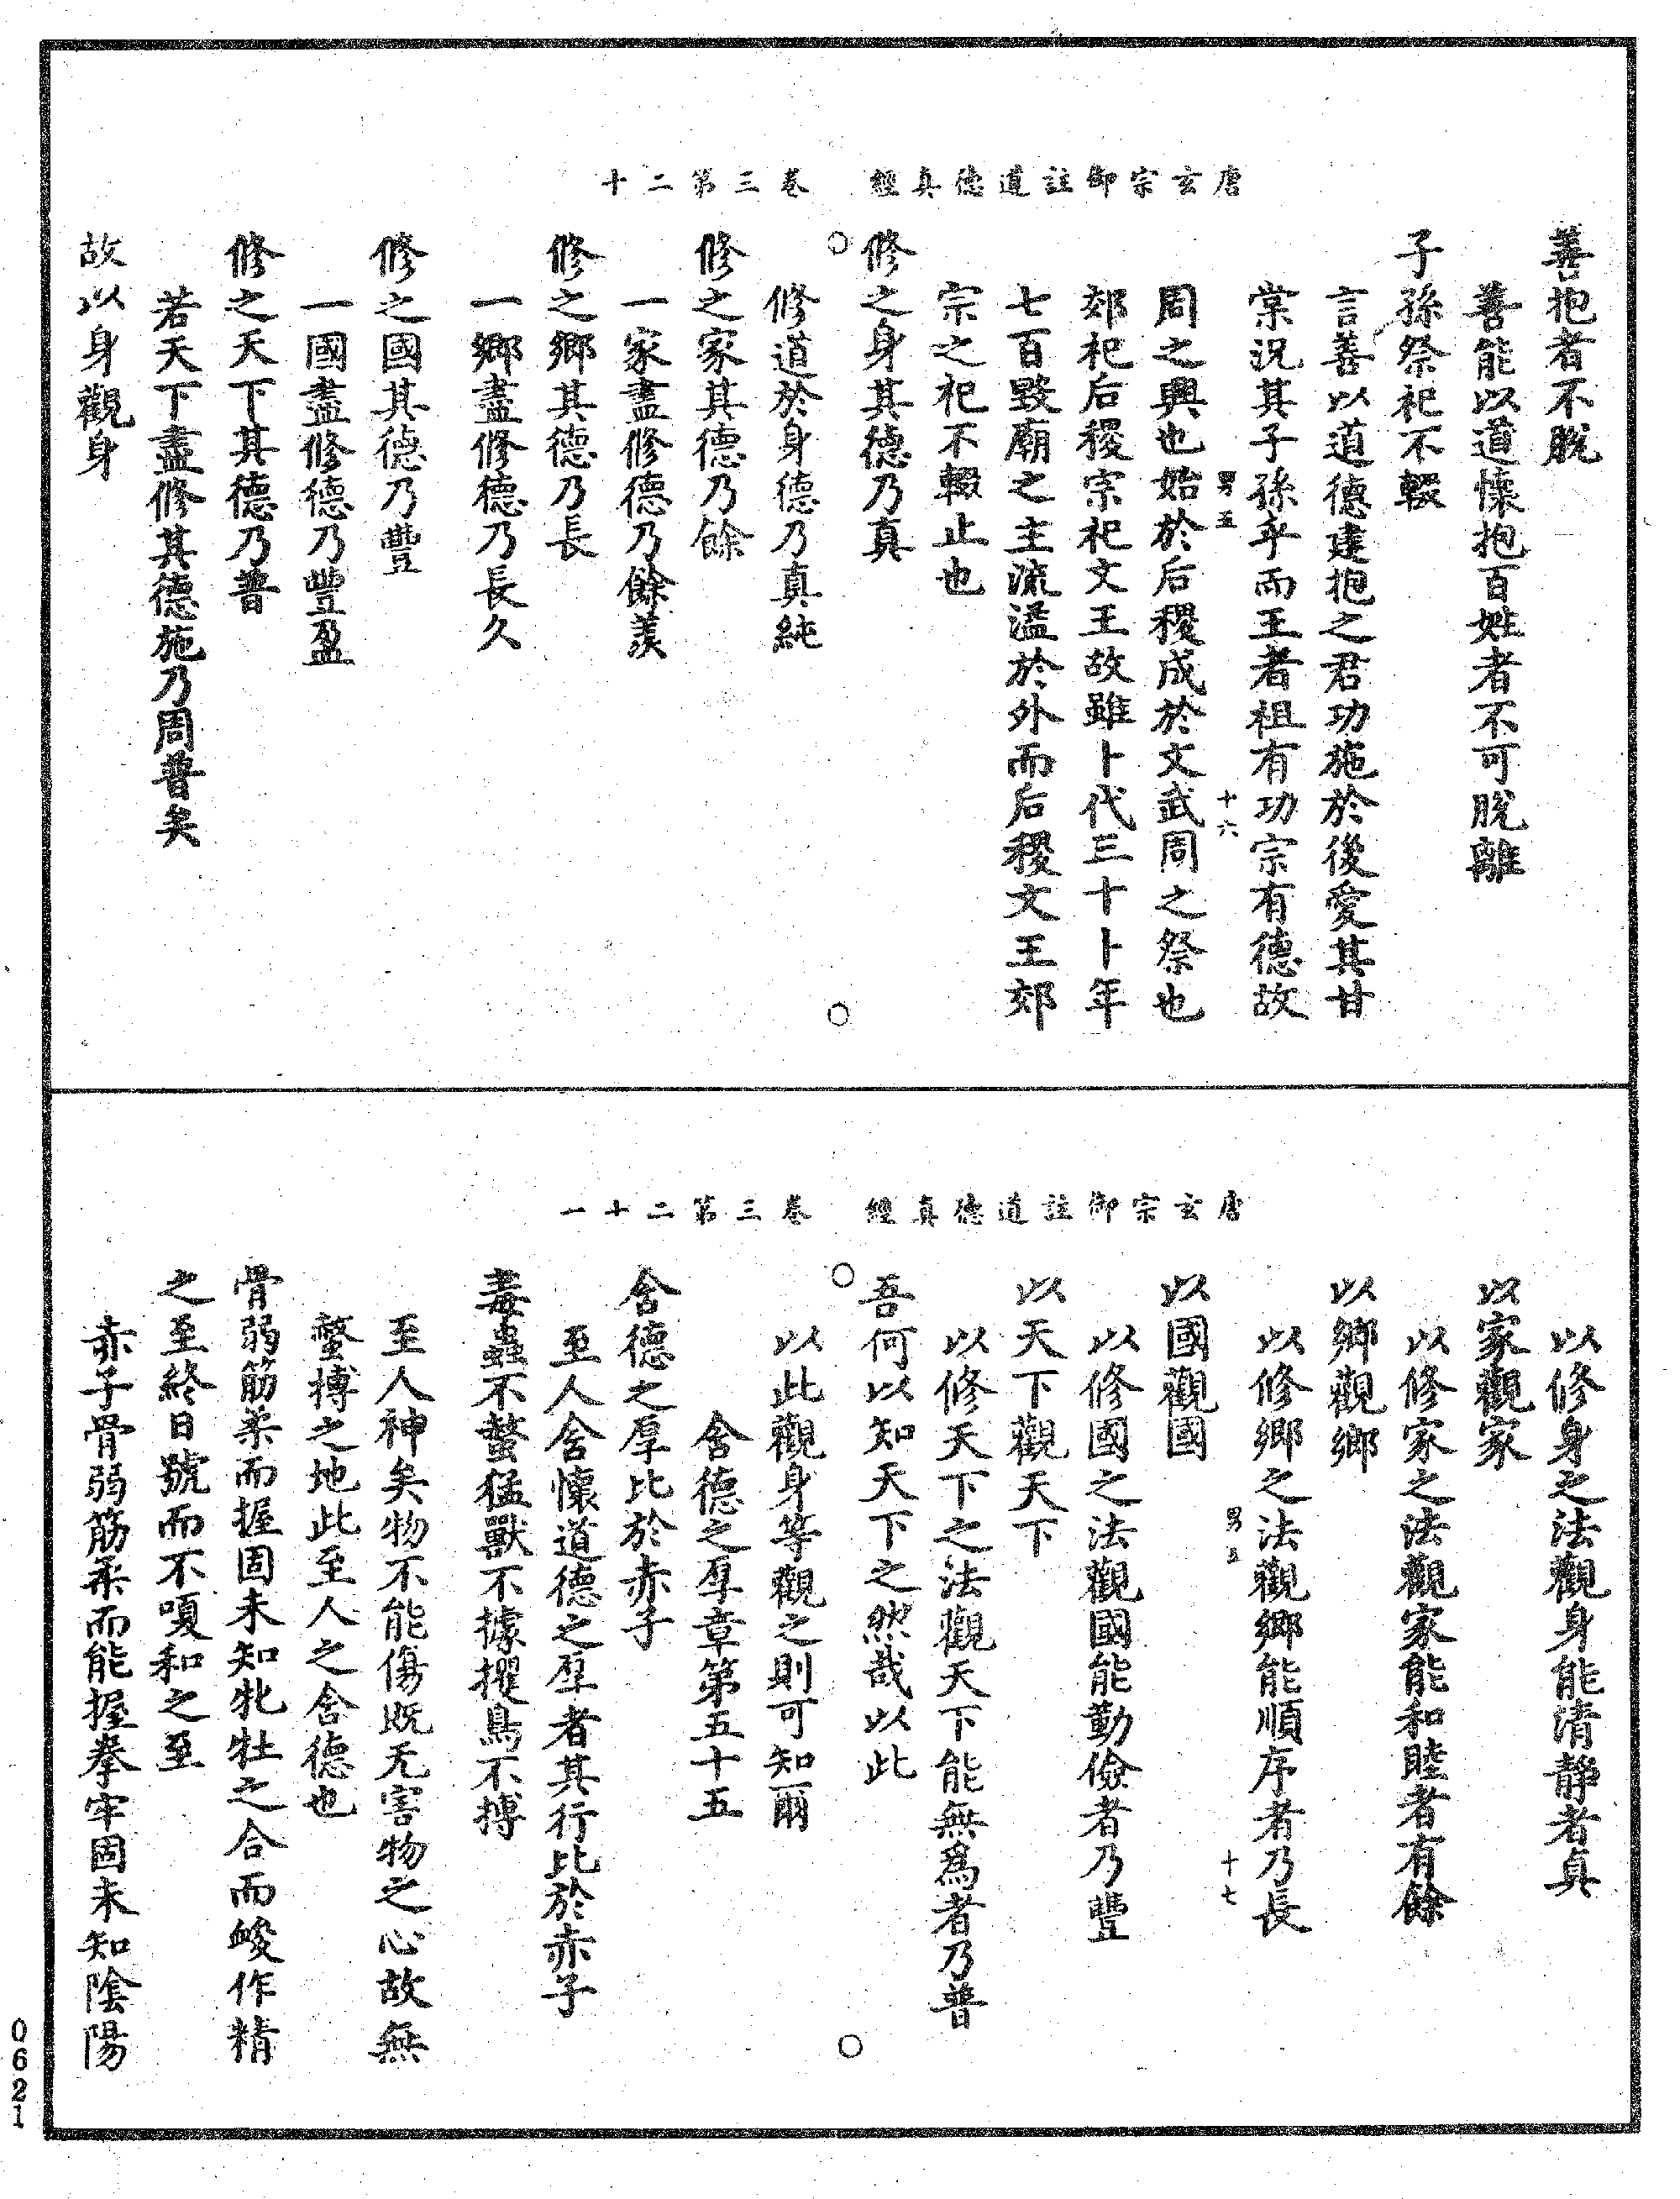 唐玄宗御註道德真經　卷三第二十
善抱者不脫
善能以道懷抱百姓者不可脫離
子孫祭祀不輟
言善以道德建抱之君功施於後愛其甘
棠況其子孫乎而王者祖有功宗有德故
男五　十六
周之興也始於后稷成於文武周之祭也
郊祀后稷宗祀文王故雖卜代三十卜年
七百毀廟之主流溢於外而后稷文王郊
宗之祀不輟止也
修之身其德乃真
修道於身德乃真純
修之家其德乃餘
一家盡修德乃餘羨
修之鄉其德乃長
一鄉盡修德乃長久
修之國其德乃豐
一國盡修德乃豐盈
修之天下其德乃普
若天下盡修其德施乃周普矣
故以身觀身
唐玄宗御註道德真經　卷三第二十一
以修身之法觀身能清靜者真
以家觀家
以修家之法觀家能和睦者有餘
以鄉觀鄉
以修鄉之法觀鄉能順序者乃長
男五　十七
以國觀國
以修國之法觀國能勤儉者乃豐
以天下觀天下
以修天下之法觀天下能無為者乃普
吾何以知天下之然哉以此
以此觀身等觀之則可知爾
含德之厚章第五十五
含德之厚比於赤子
至人含懷道德之厚者其行比於赤子
毒蟲不螫猛獸不據攫鳥不搏
至人神矣物不能傷既无害物之心故無
螫搏之地此至人之含德也
骨弱筋柔而握固未知牝牡之合而峻作精
之至終日號而不嗄和之至
赤子骨弱筋柔而能握拳牢固未知陰陽
0621